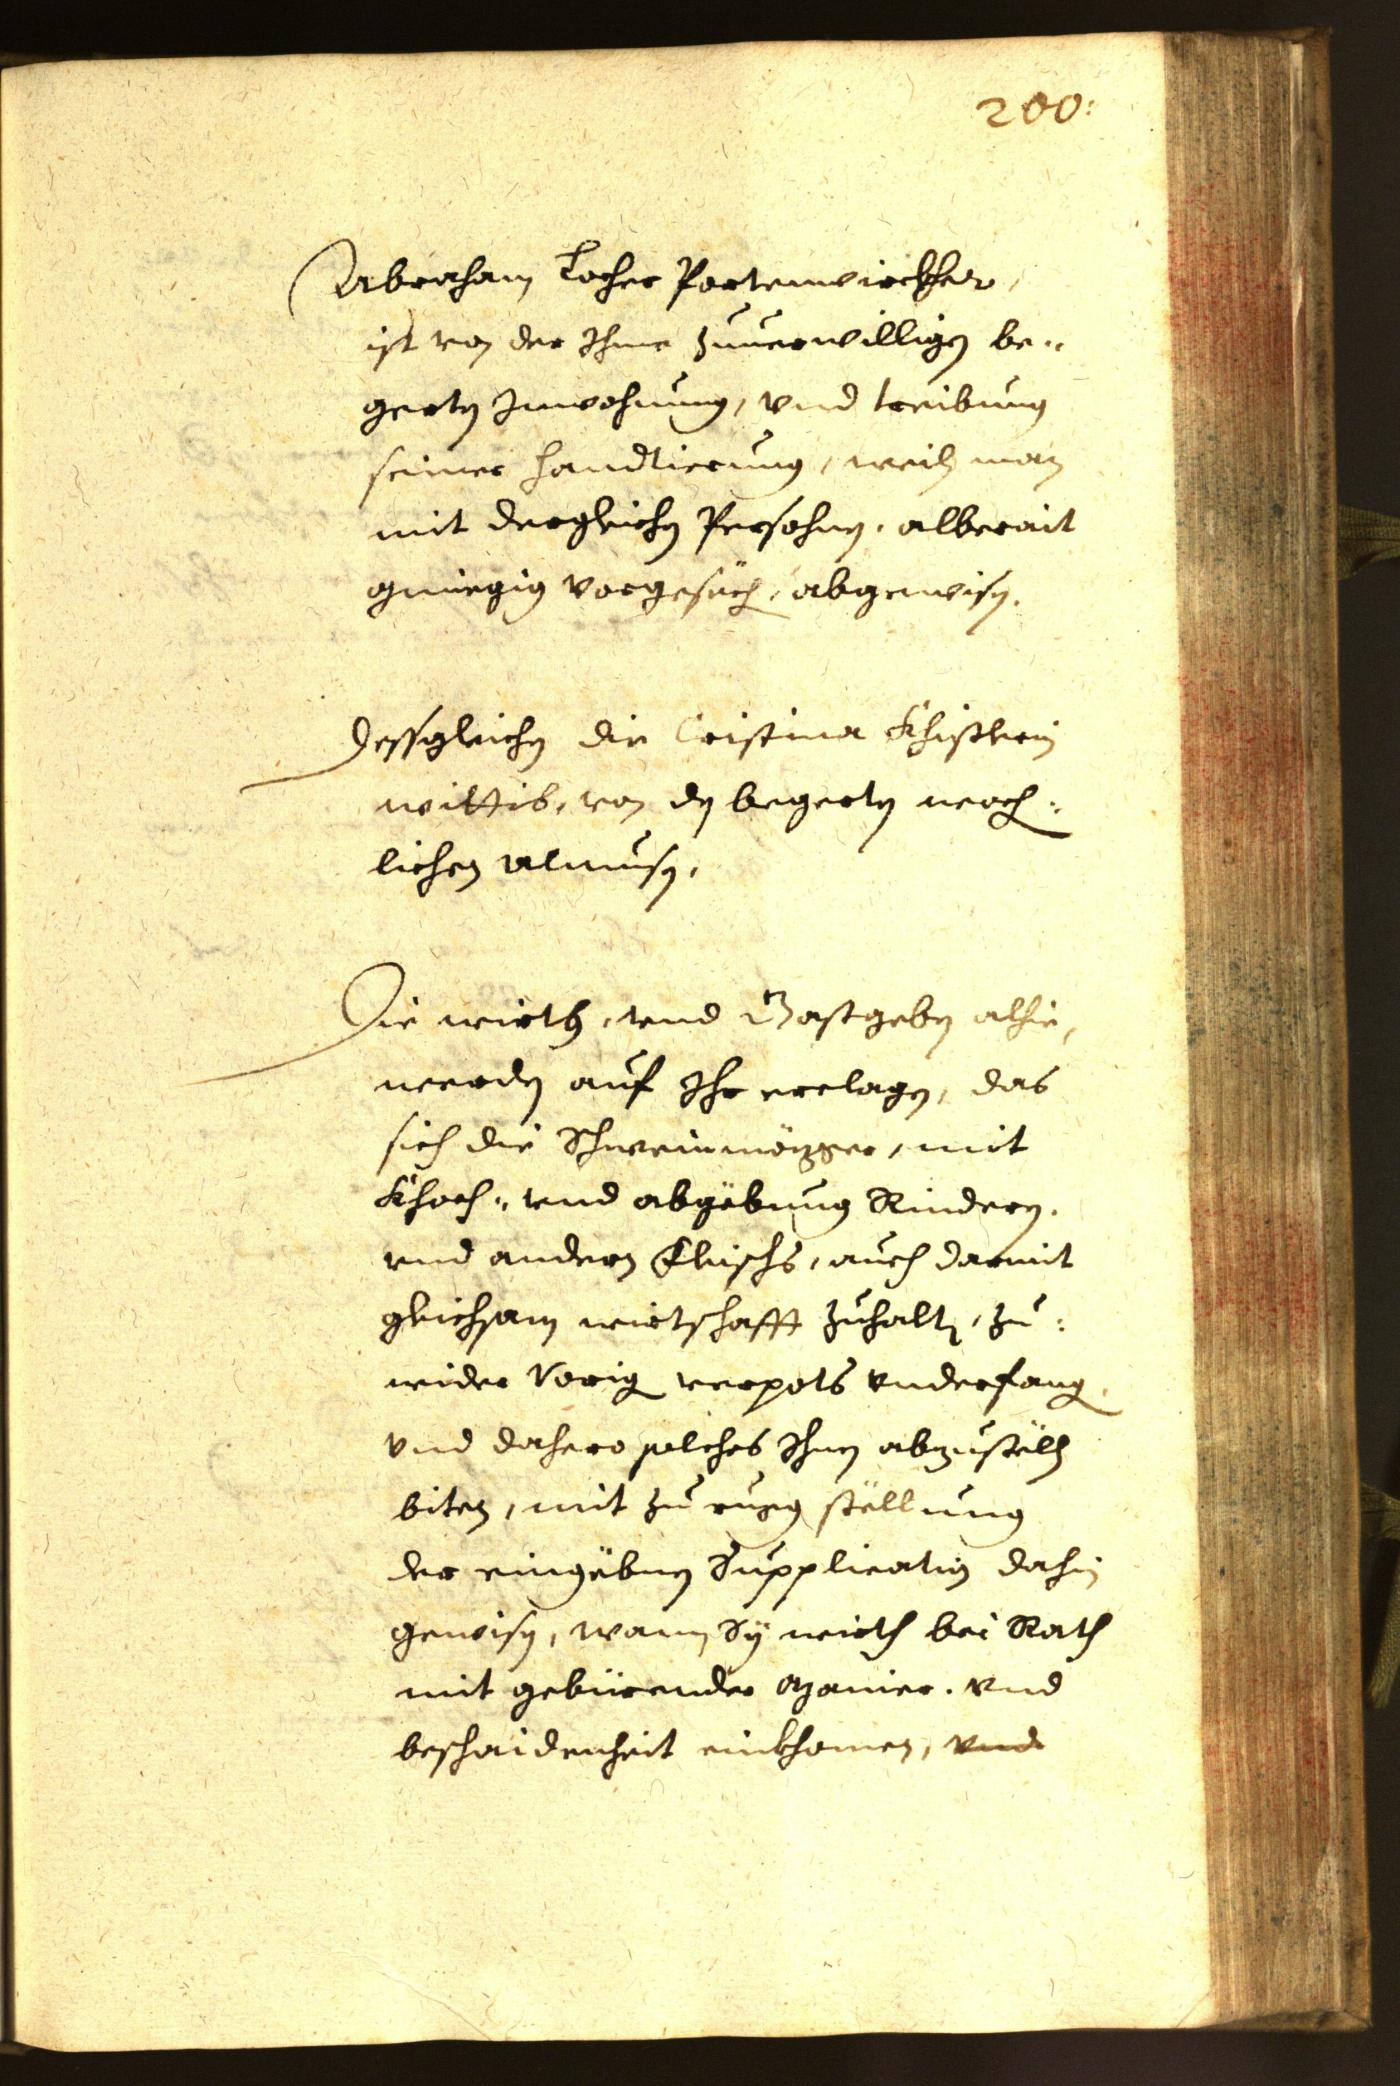 200:
Abraham Locher Portenwirckher,
ist von der Ihme zuuerwilligen be„
gerten Inwohnung, vnd treibung
seiner handtierung, weiln man
mit dergleichen Persohnen, alberait
gnuegig vorgesäch, abgewisen.
Dessgleichen die Cristina Khistlerin
wittib, von den begerten woch„
lichen Almusen,
Die wirth, vnd Gastgeben alhie,
werden auf Ihr erclagen, das
sich die Schweinmözger, mit
Khoch„ vnd abgäbung Rinderen,
vnd andern Fleischs, auch darmit
gleichsam wirtschafft zuhalten, zu„
wider vorig verpots vnderfang,
vnd dahero solches Ihnen abzustölln
biten, mit zu rugg stellung
der eingäbnen Supplication dahin
gewisen, wann Sÿ wirth bei Rath
mit gebürender Manier, vnd
beschaidenheit einkhomen, vnd